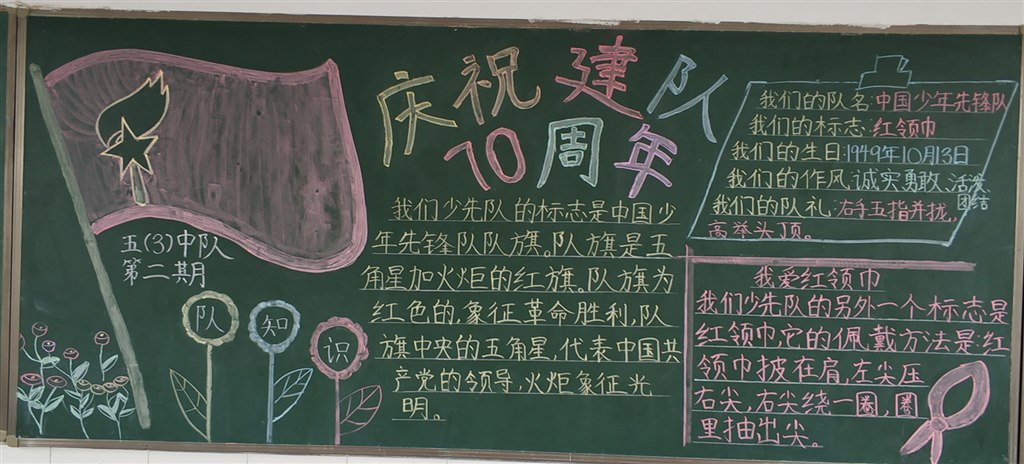 庆祝建队
10周年
五(3)中队
第二期
队知识
我们少先队的标志是中国少
年先锋队队旗。队旗是五
角星加火炬的红旗。队旗为
红色的,象征革命胜利,队
旗中央的五角星,代表中国共
产党的领导,火炬象征光
明。
我们的队名:中国少年先锋队
我们的标志:红领巾
我们的生日:1949年10月13日
我们的作风:诚实勇敢、活泼、
团结
我们的队礼:右手五指并拢,
高举头顶。
我爱红领巾
我们少先队的另外一个标志是
红领巾,它的佩戴方法是红
领巾披在肩,左尖压
右尖,右尖绕一圈,圈
里抽出尖。